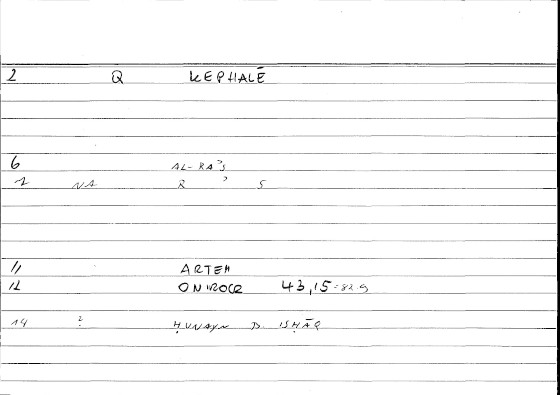 2 Q KEPHALĒ
6 AL-RAʾS
7 NA R ʾ S
11 ARTEM
12 ONIROCR 43,15 = 82.9
14 ? ḤUNAYN B. ISḤĀQ